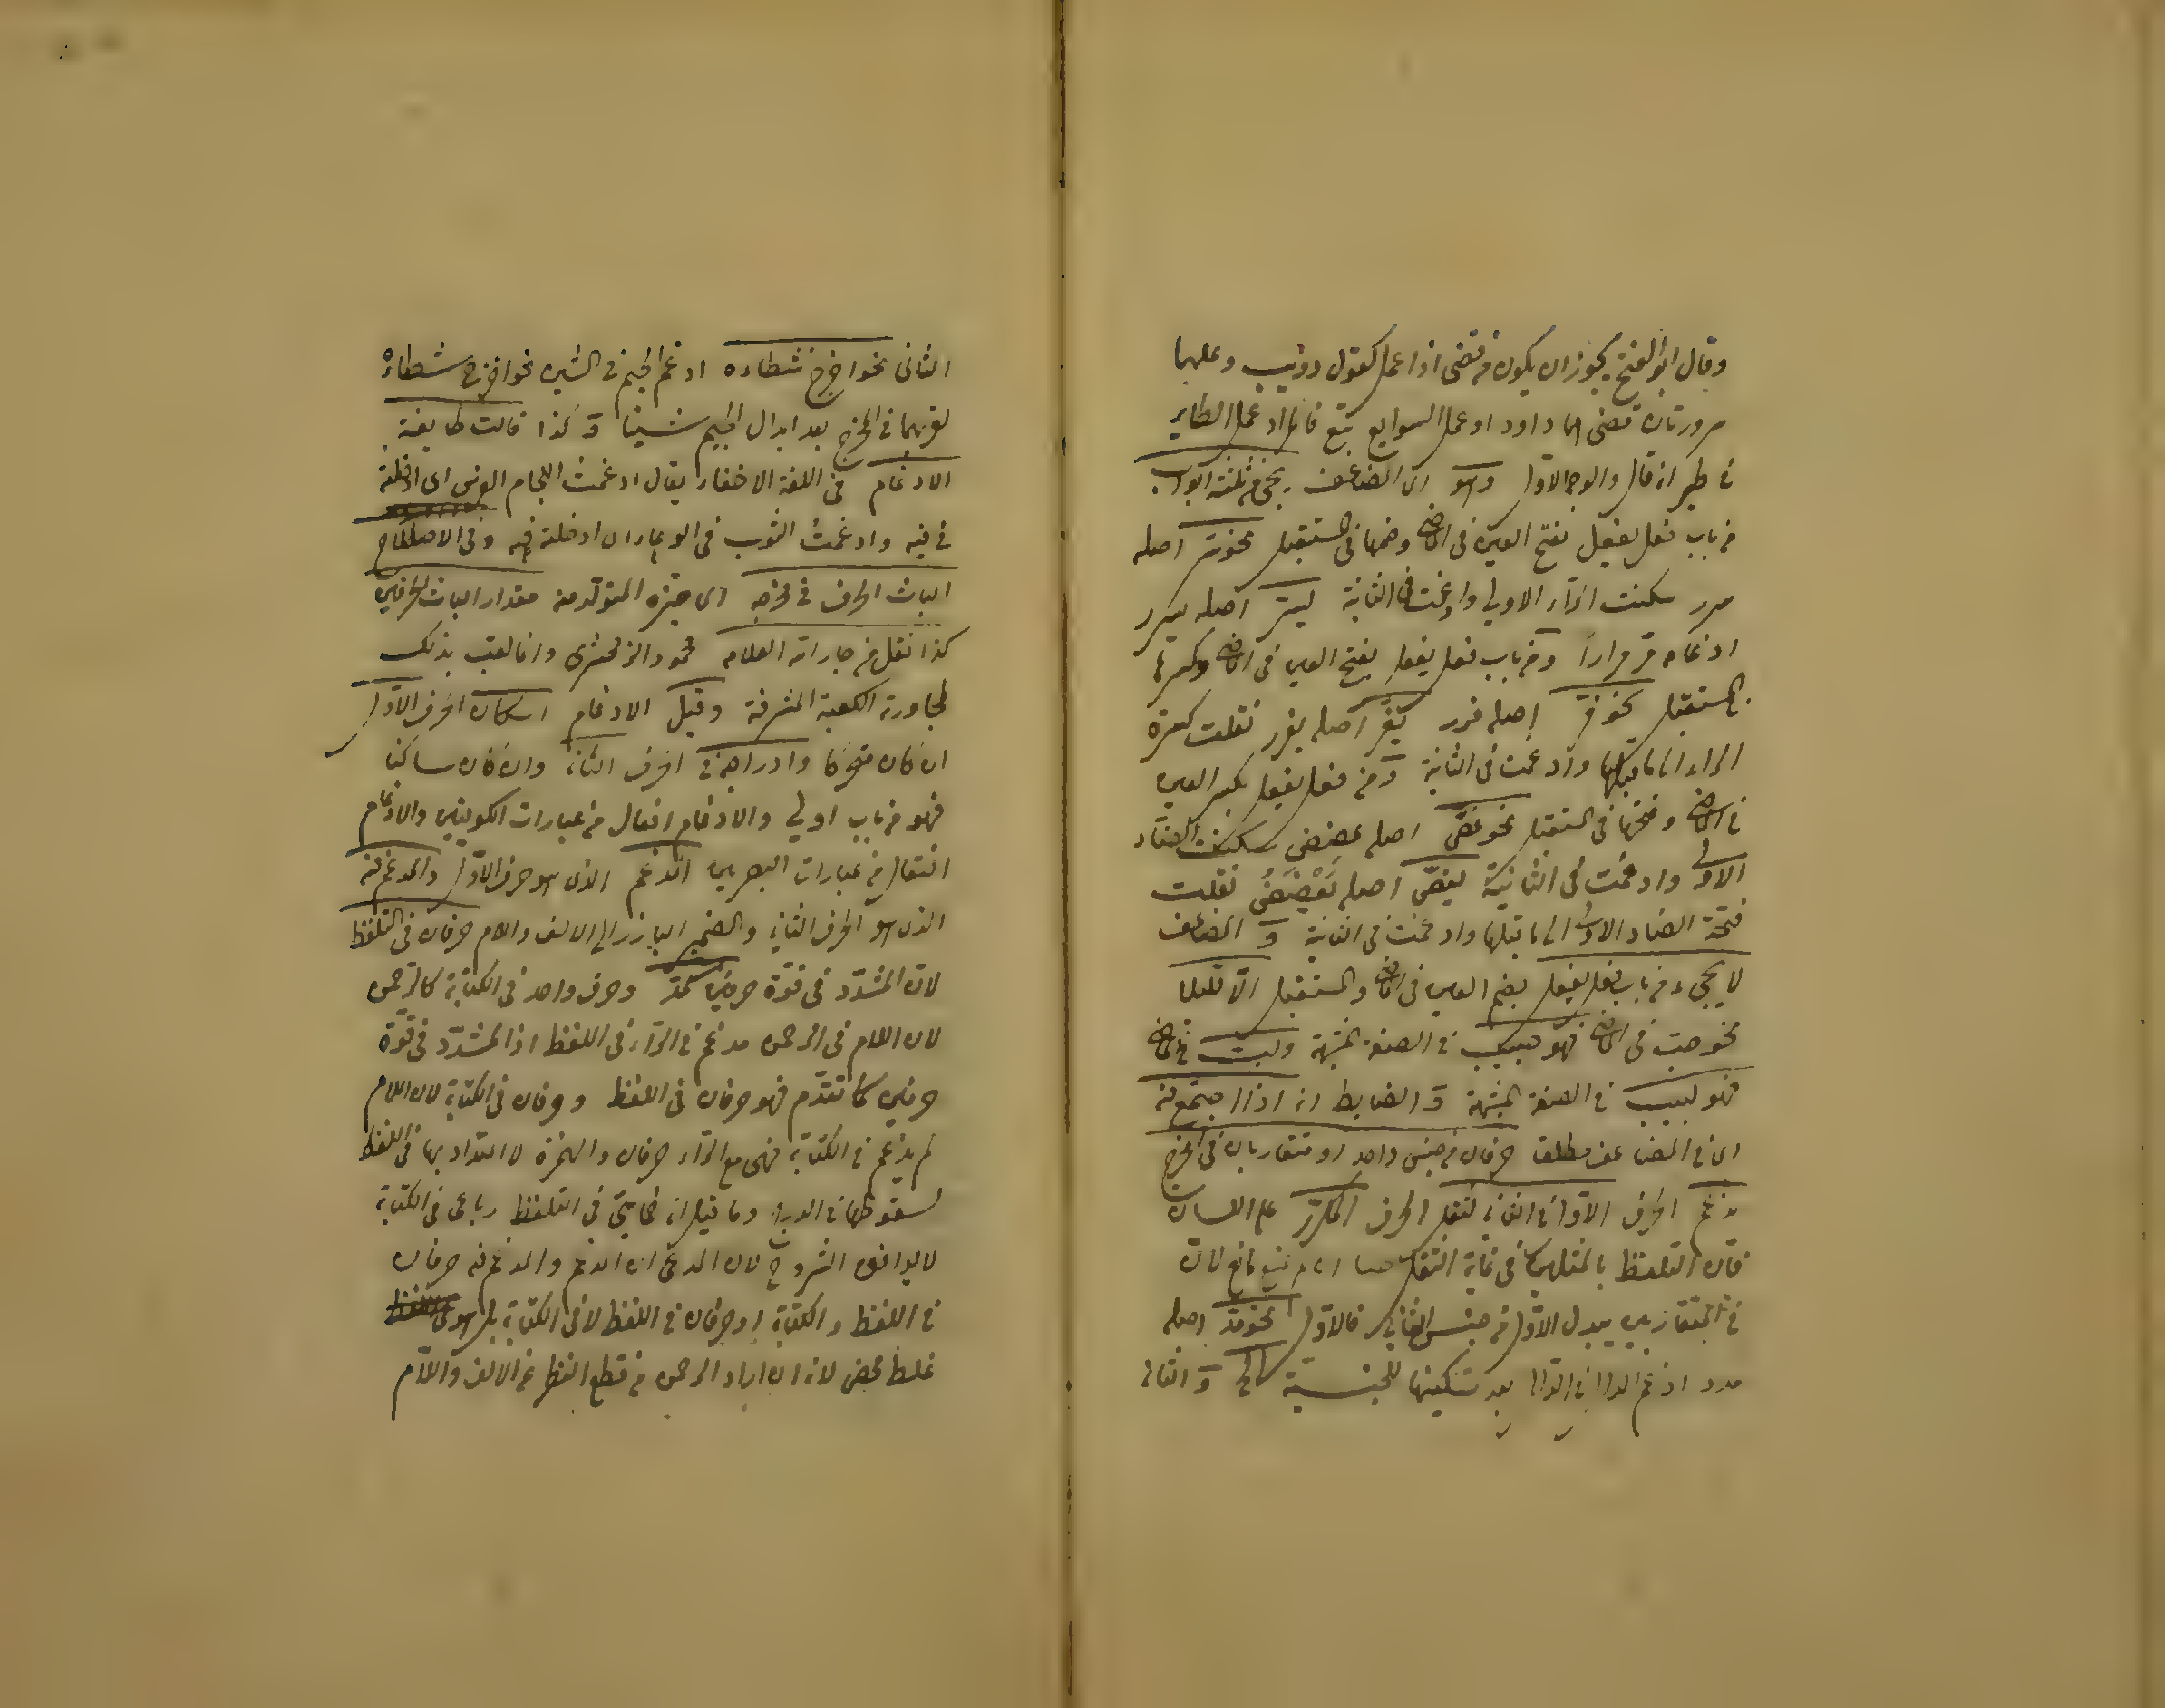 وقال ابو الفتح يجوز ان يكون من قضى اذا عمل كقول ذؤيب وعليهما
مسرورتان قضى اهما داود او عمل السوابغ تبع
في طير انه قال والوجه الاول وهو اى المضاعف يجئ من ثلثة ابواب
من باب فعل يفعل بفتح العين فى الماضى وضمها فى المستقبل نحو سرّ اصله
سرر سكنت الراء الاولى وادغمت فى الثانية يسرّ اصله يسرر
ادغامه مر مرارًا ومن باب فعل يفعل بفتح العين فى الماضى وكسرها
فى المستقبل نحو فرّ اصله فرر يفرّ اصله يفرر نقلت كسرة
الراء الى ما قبلها وادغمت فى الثانية ومن فعل يفعل بكسر العين
فى الماضى وفتحها فى المستقبل نحو عضّ اصله عضض سكنت الضاد
الاولى وادغمت فى الثانية يعضّ اصله يَعْضَضُ نقلت
فتحة الضاد الاولى الى ما قبلها وادغمت فى الثانية و المضاعف
لا يجىء من باب فعل يفعل بضم العين فى الماضى والمستقبل الّا قليلا
نحو حبّ فى الماضى فهو حبيب فى الصفة المشبهة ولبّ فى الماضى
فهو لبيب فى الصفة المشبهة و الضابط انه اذا اجتمع فيه
اى فى المضاعف مطلقا حرفان من جنس واحد او متقاربان فى المخرج
يدغم الحرف الاول فى الثانى لثقل الحرف المكرّر على اللسان
فان التلفظ بالمثلين فى غاية الثقل
فى المتقاربين يبدل الاول من جنس الثانى فالاول نحو مدّ اصله
مدد ادغم الدال فى الدال بعد تسكينها للجنسية و الثانى
الثانى نحو اخرج شطاءه ادغم الجيم فى الشين نحو اخرج شطاءه
لقربهما فى المخرج بعد ابدال الجيم شينا و كذا قالت طايفة
الادغام فى اللغة الاخفاء يقال ادغمت اللجام الفرس اى ادخلته
فى فيه وادغمت الثوب فى الوعاء اى ادخلته فيه وفى الاصطلاح
الباث الحرف فى مخرجه اى حيزه المتولد منه مقدار الباث الحرفين
كذا نقل من جار الله العلامه محمود الزمخشرى وانما لقب بذلك
لمجاورته الكعبة المشرفة وقيل الادغام اسكان الحرف الاول
ان كان متحركا وادراجه فى الحرف الثانى وان كان ساكنا
فهو من باب اولى والادغام افعال من عبارات الكوفيين والادغام
افتعال من عبارات البصريين المدغم الذى هو حرف الاول والمدغم فيه
الذى هو الحرف الثانى والضمير البارز الى الالف واللام حرفان فى التلفظ
لان المشدد فى قوة حرفين كمدّ وحرف واحد فى الكتابة كالرحمن
لان اللام فى الرحمن مدغم فى الراء فى اللفظ اذ المشدّد فى قوّة
حرفين كما تقدّم فهو حرفان فى اللفظ وحرفان فى الكتابة لان اللام
لم يدغم فى الكتابة فهى مع الراء حرفان والهمزة لا اعتداد بها فى اللفظ
لسقوطها فى الدرج وما قيل انه خماسى فى التلفظ رباعى فى الكتابة
لا يوافق الشروح لان المدعى ان المدغم والمدغم فيه حرفان
فى اللفظ والكتابة او حرفان فى اللفظ لا فى الكتابة بل هو
غلط محض لانه ان اراد الرحمن من قطع النظر عن الالف واللام